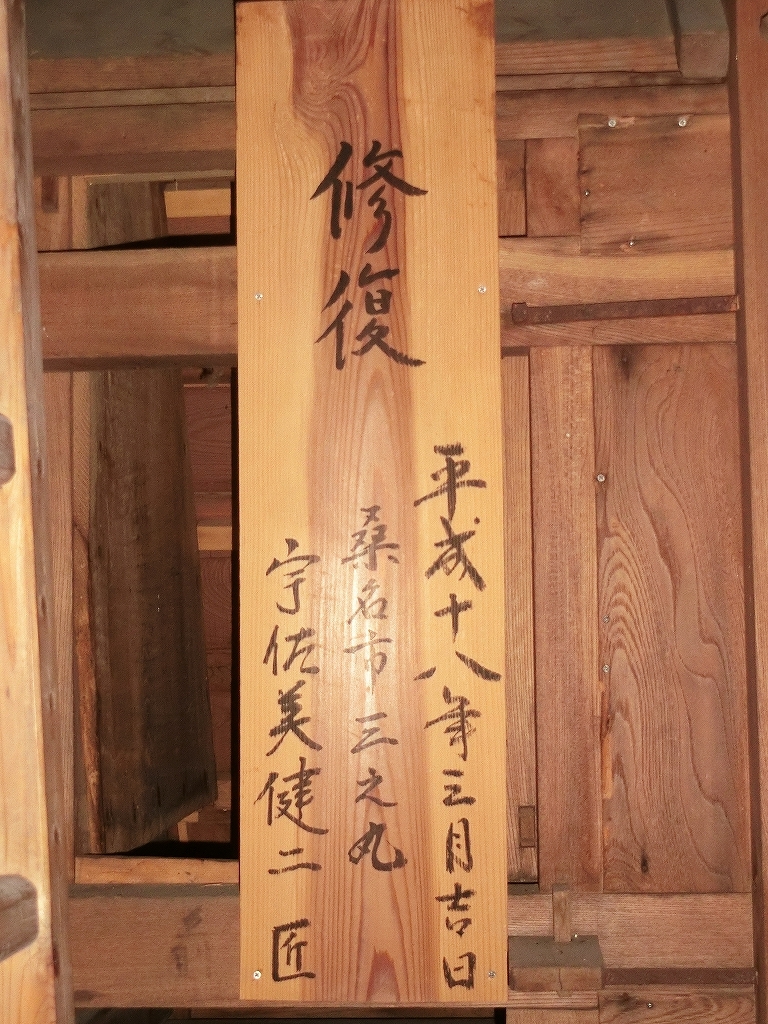 修復
平成十八年三月吉日
桑名市 三之丸
宇佐美健二 匠